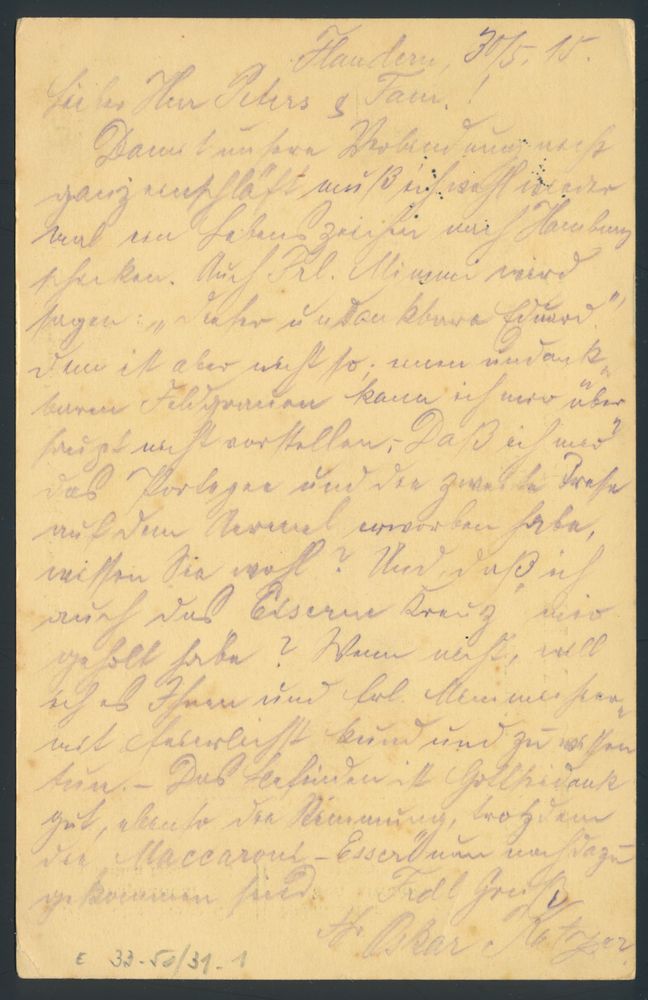 Flandern, 30/5. 15.
Lieber Herr Peters & Fam.!
Damit unsere Verbindung nicht
ganz einschläft muß ich wohl wieder
mal ein Lebenszeichen nach Hamburg
schicken. Auch Frl. Mimmi wird
sagen: „dieser undankbare Eduard."
dem ist aber nicht so; einen undank-
baren Feldgrauen kann ich mir über-
haupt nicht vorstellen; Daß ich mir
das Portepee und die zweite Tresse
auf dem Aermel erworben habe,
wissen Sie wohl? Und daß ich
auch das „Eiserne Kreuz" mir
geholt habe? Wenn nicht, will
ich es Ihnen und Frl.
mit feierlichst kund und zu wissen
tun. – Das Befinden ist Gottseidank
gut, ebenso die Stimmung, trotzdem
die Maccaroni-Esser nun noch dazu
gekommen sind. Frdl Gruß
Ihr Oskar
E 33-50/31-1